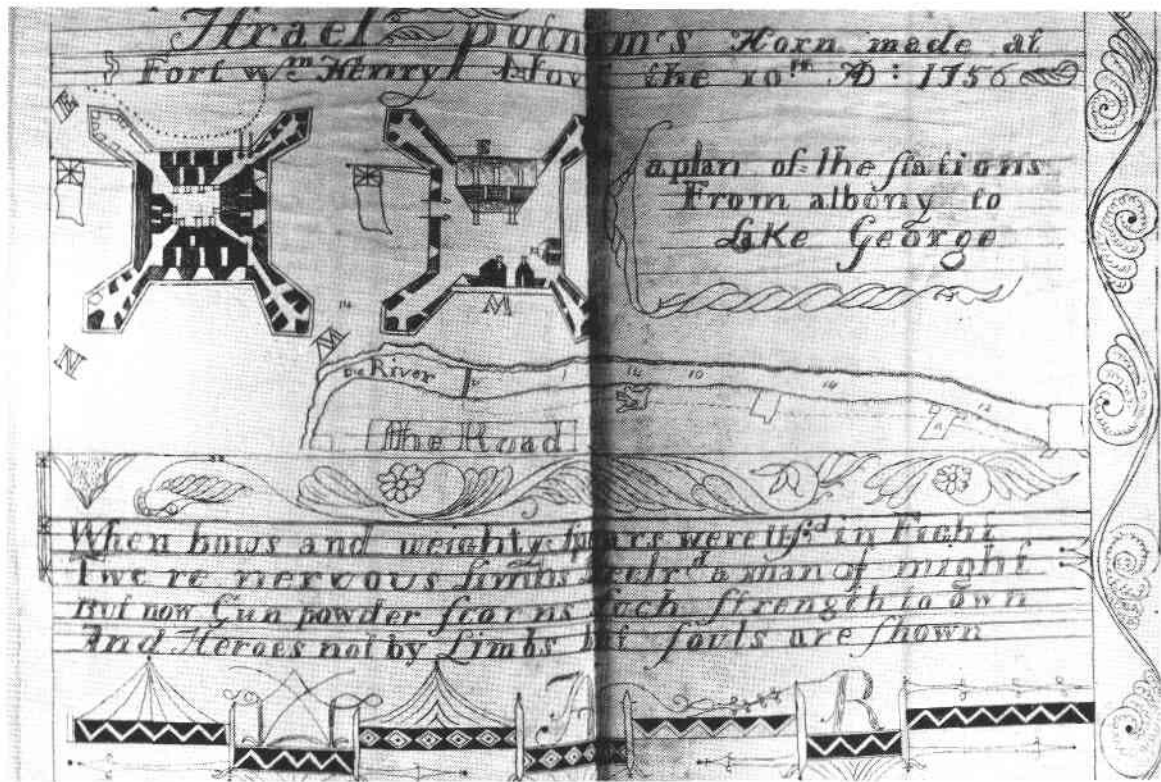 Israel putnam's Horn made at
Fort Wm Henry Novr the 10th AD: 1756
E
N
14
M
M
a plan of the stations
From albany to
Lake George
River
14
10
14
12
A
the Road
When bows and weighty spears were us'd in Fight
Twere nervous limbs declrd a man of might
But now Gun powder scorns such strength to own
And Heroes not by Limbs but souls are shown
W A R